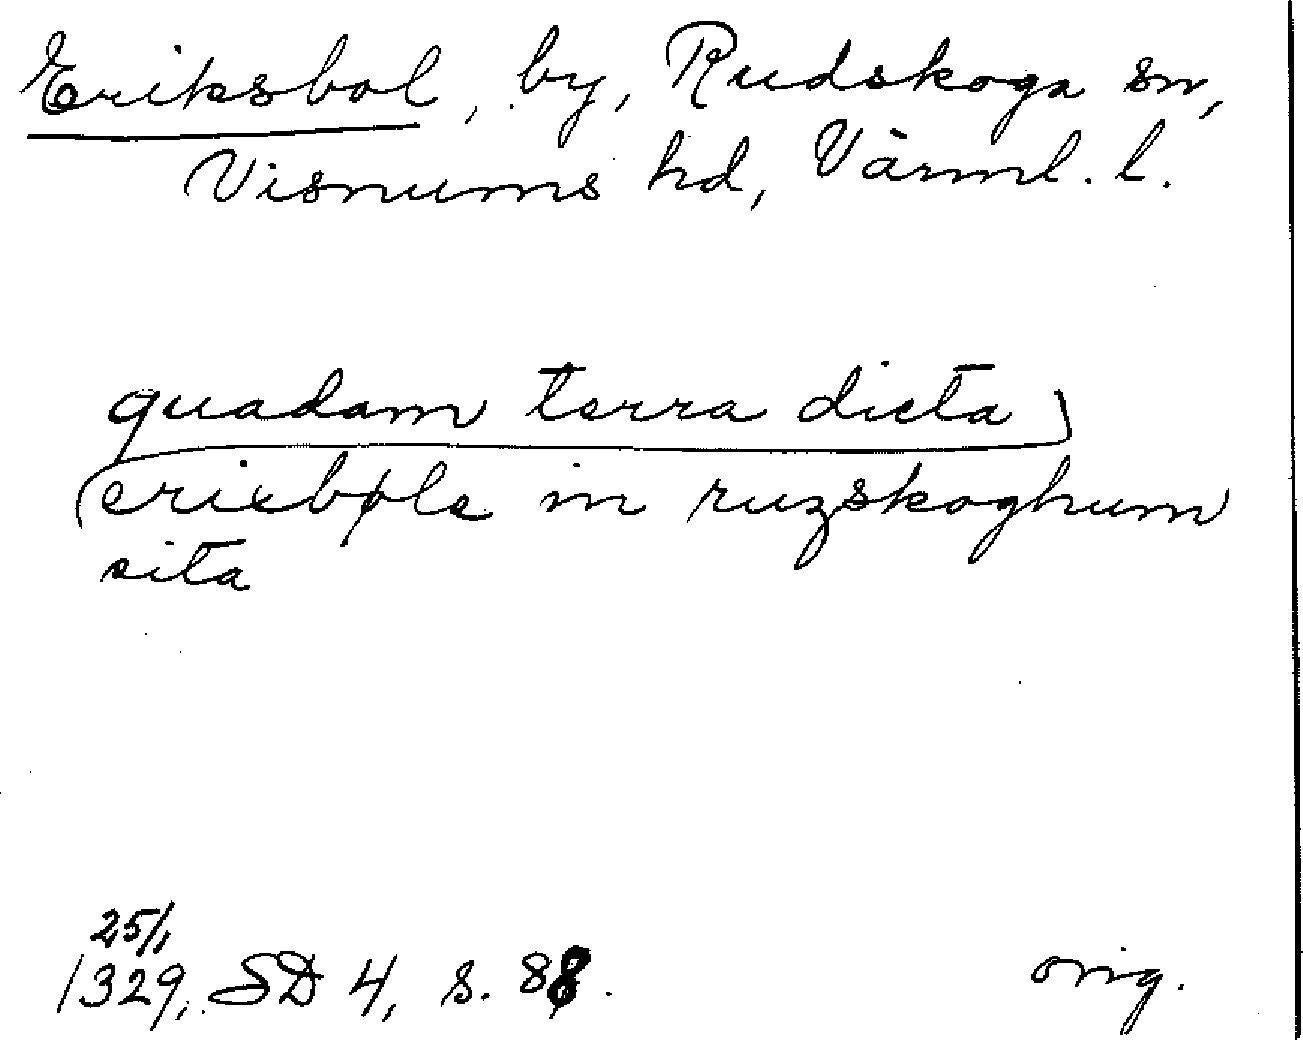 Eriksbol, by, Rudskoga sn,
Visnums hd, Värml. l.
quadam terra dicta
erixbøle in ruzskoghum
sita
25/1
1329, SD 4, s. 88. orig.